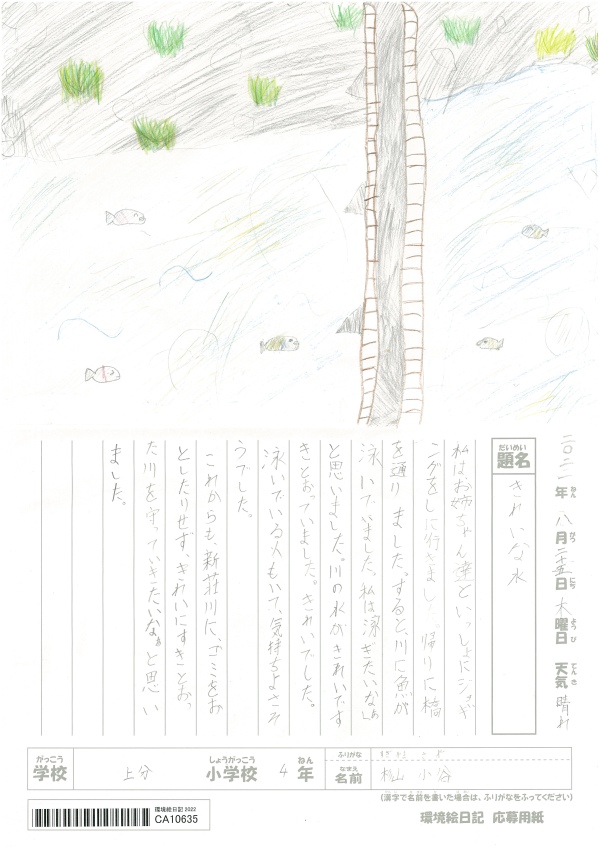 二〇二二年八月二十五日木曜日 天気晴れ
ねん がつ にち ようび てんき
だいめい
題名 きれいな水
私はお姉ちゃん達といっしょにジョギ
ングをしに行きました。帰りに橋
を通りました。すると、川に魚が
泳いでいました。私は「泳ぎたいなぁ」
と思いました。川の水がきれいです
きとおっていました。きれいでした。
泳いでいる人もいて、気持ちよさそ
うでした。
これからも、新荘川に、ゴミをお
としたりせず、きれいにすきとおっ
た川を守っていきたいなぁと思い
ました。
がっこう しょうがっこう ねん
学校 上分 小学校 4年
ふりがな
なまえ
名前 杉山 小谷
(漢字で名前を書いた場合は、ふりがなをふってください)
環境絵日記 2022
CA10635
環境絵日記 応募用紙